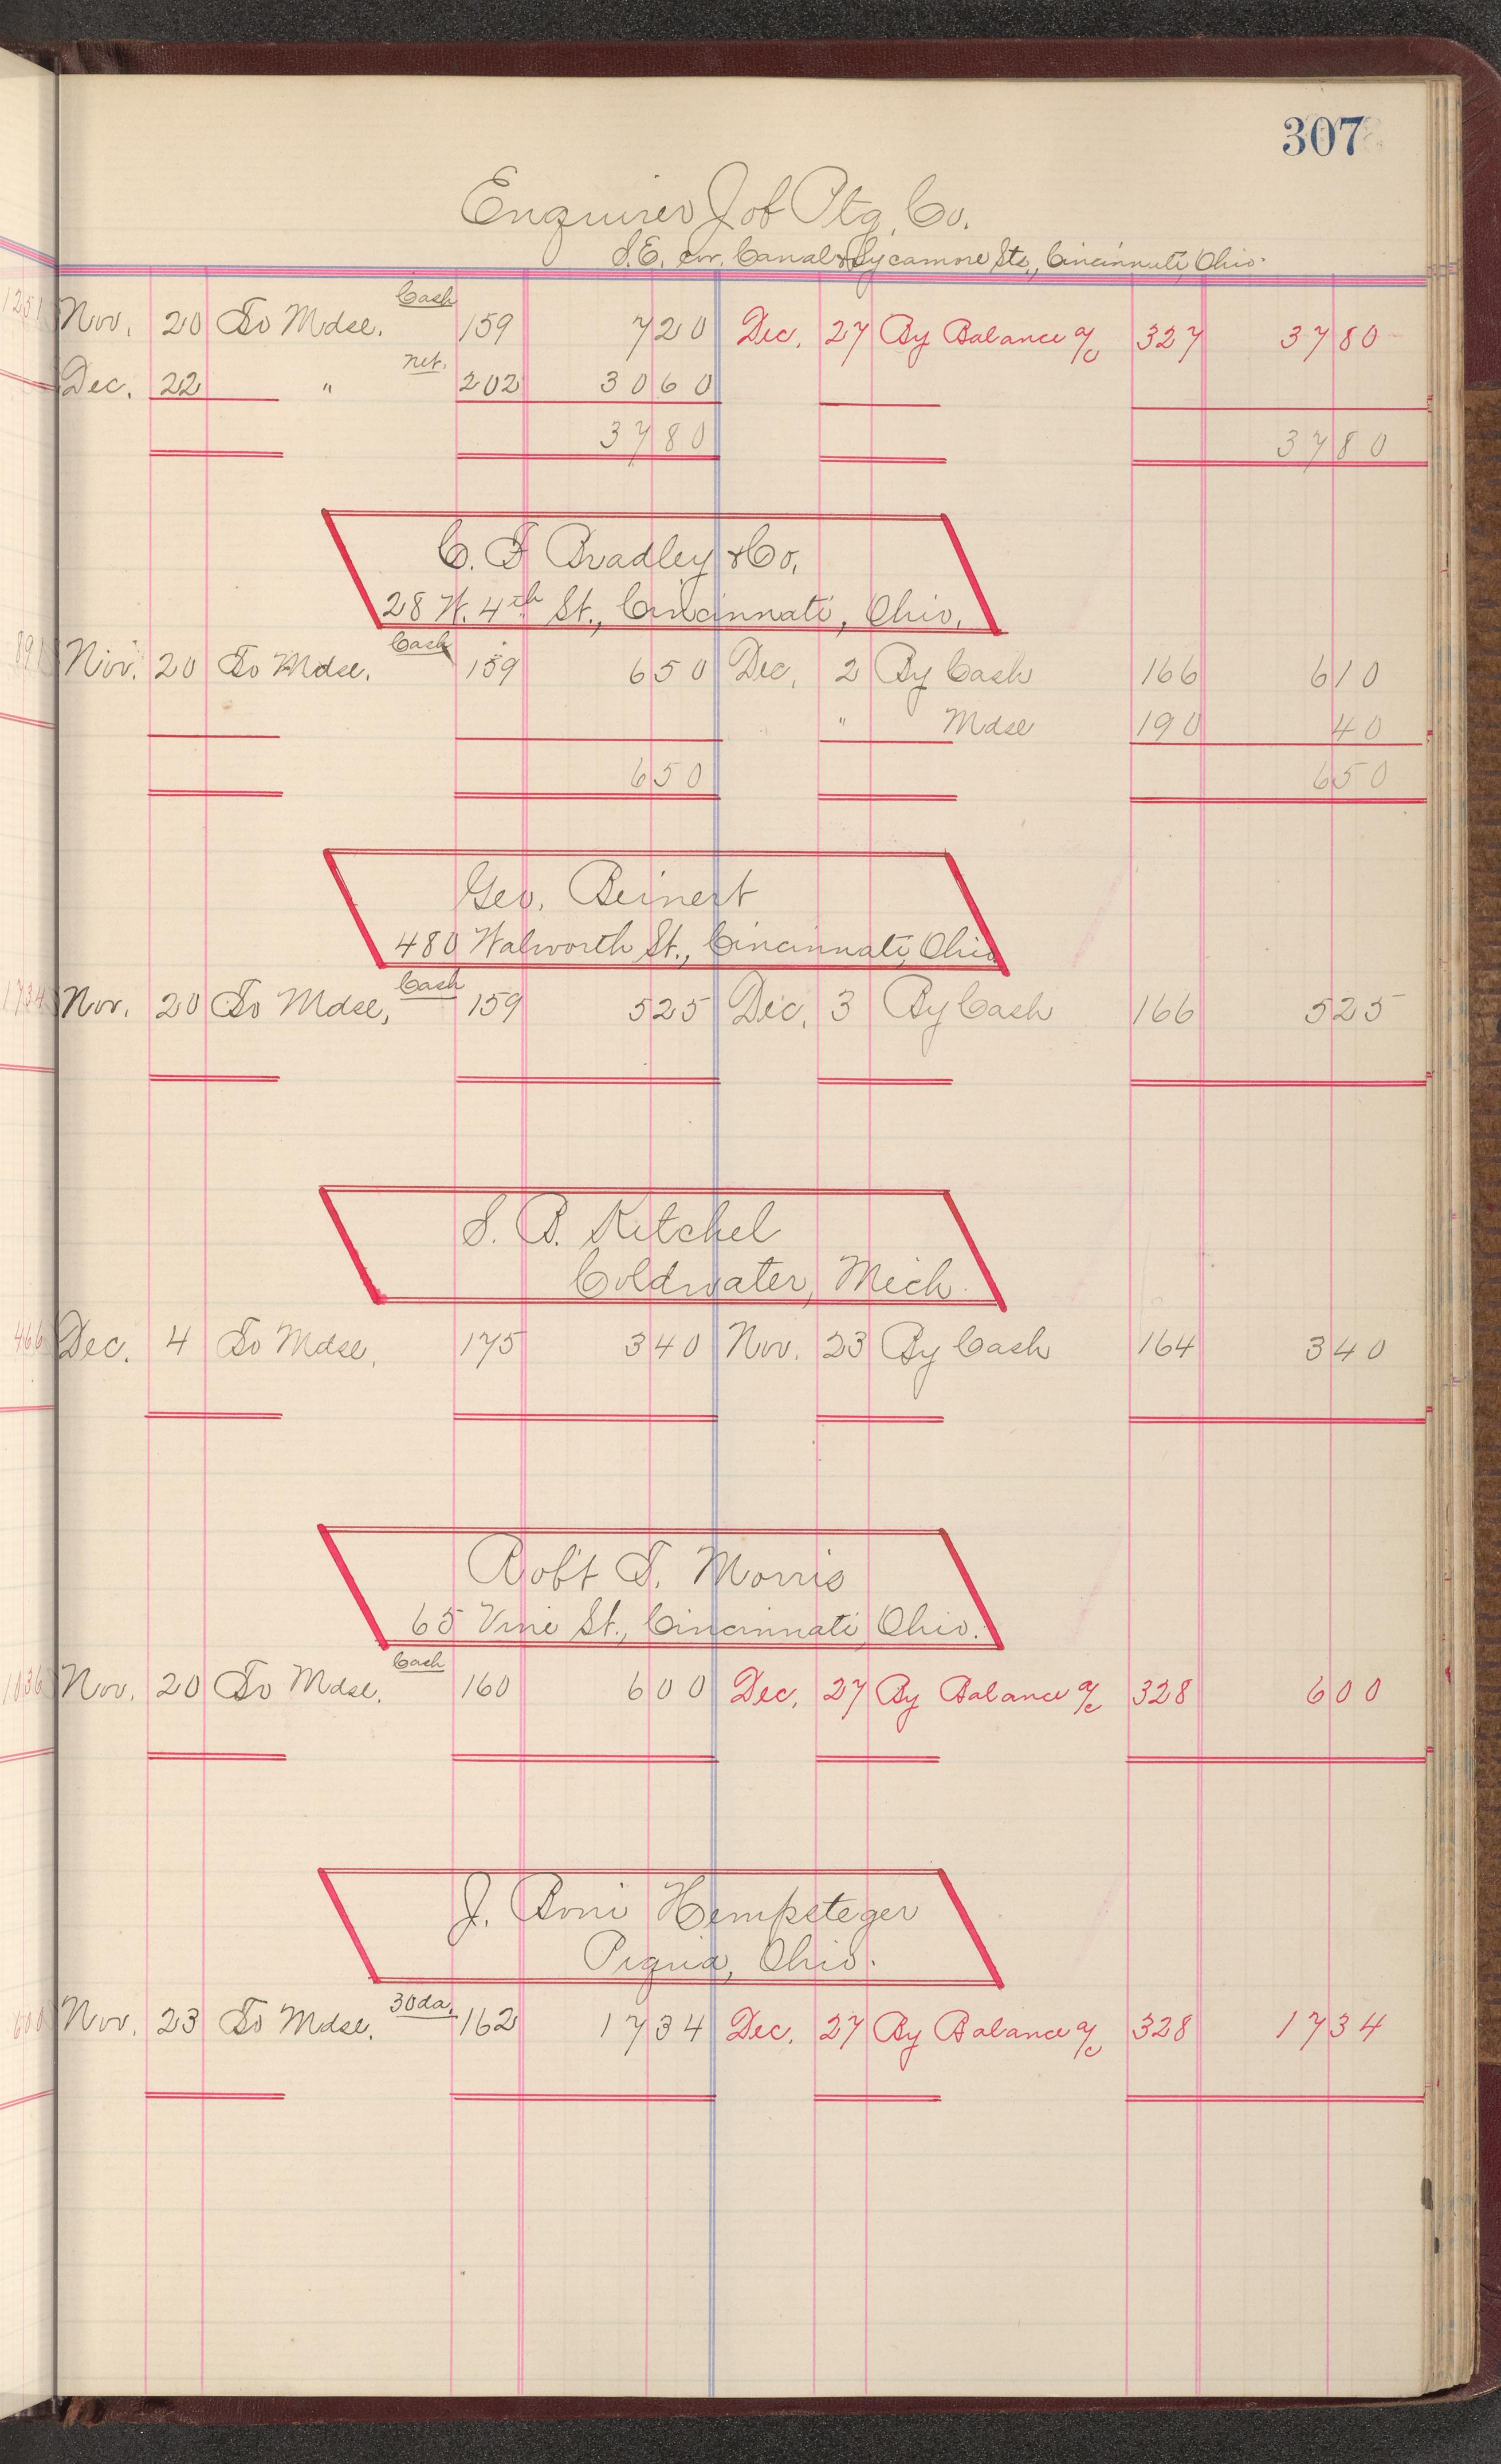 307
Enquirer Job Ptg. Co.
S.E. cor. Canal & Sycamore Sts., Cincinnati, Ohio.
Nov. 20 To Mdse. Cash 159 7 20 Dec. 27 By Balance a/c 327 37 80
Dec. 22 " net. 202 30 60
37 80 37 80
C. F Bradley & Co.
28 W. 4th St., Cincinnati, Ohio.
Nov. 20 To Mdse. Cash 159 6 50 Dec. 2 By Cash 166 6 10
" Mdse 190 40
6 50 6 50
Geo. Beinert
480 Walworth St., Cincinnati, Ohio
1734 Nov. 20 To Mdse, Cash 159 5 25 Dec. 3 By Cash 166 5 25
S. B. Kitchel
Coldwater, Mich.
466 Dec. 4 To Mdse. 175 3 40 Nov. 23 By Cash 164 3 40
Rob't T. Morris
65 Vine St., Cincinnati, Ohio.
1036 Nov. 20 To Mdse. Cash 160 6 00 Dec. 27 By Balance a/c 328 6 00
J. Boni Hempsteger
Piqua, Ohio.
600 Nov. 23 To Mdse. 30 da. 162 17 34 Dec. 27 By Balance a/c 328 17 34